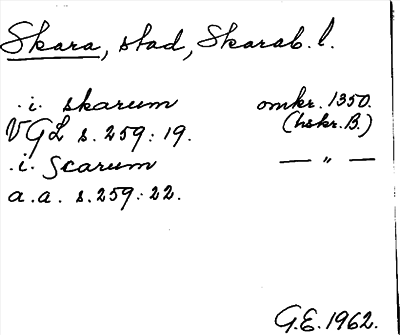 Skara, stad, Skarab. l.
.i. skarum omkr. 1350.
VGL s. 259:19. (hskr. B.)
.i. Scarum — „ —
a.a. s. 259:22.
G.E. 1962.